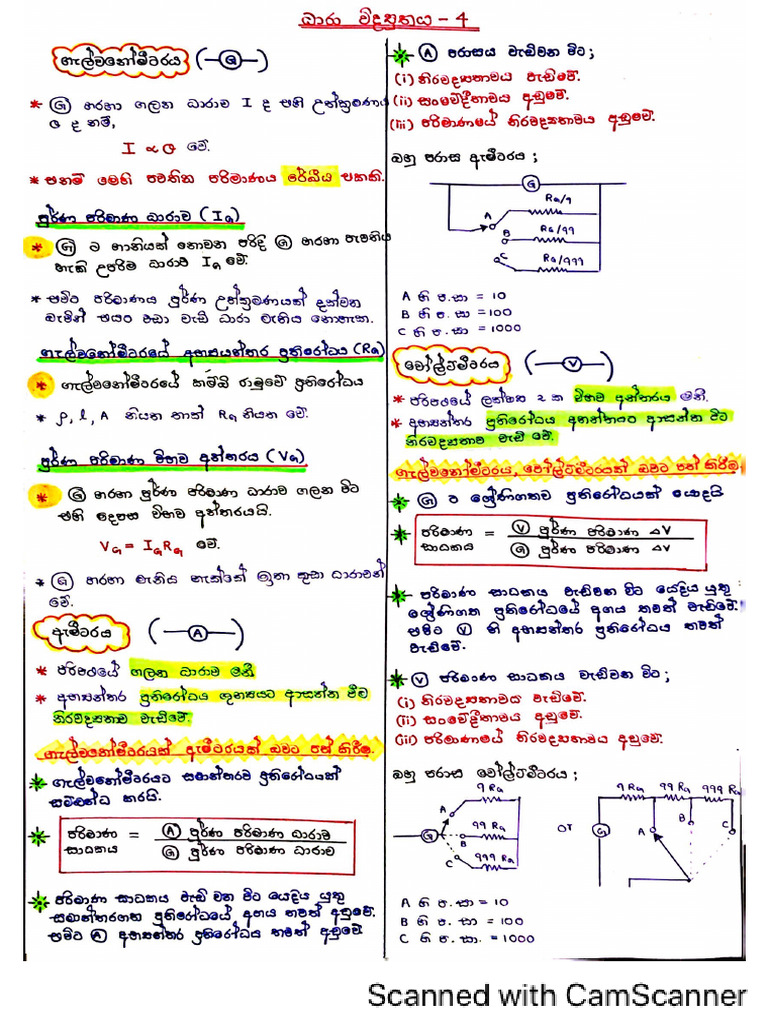 ධාරා විද්‍යුතය - 4
ගැල්වනෝමීටරය (—G—)
* G හරහා ගලන ධාරාව I ද එහි උත්ක්‍රමණය
θ ද නම්,
I ∝ θ වේ.
* එනම් මෙහි පවතින පරිමාණය රේඛීය එකකි.
පූර්ණ පරිමාණ ධාරාව (IG)
* G ට හානියක් නොවන පරිදි G හරහා පැවතිය
හැකි උපරිම ධාරාව IG වේ.
* එමට පරිමාණය පූර්ණ උත්ක්‍රමණයක් දක්වන
බැවින් එයට වඩා වැඩි ධාරා මැනිය නොහැක.
ගැල්වනෝමීටරයේ අභ්‍යන්තර ප්‍රතිරෝධය (RG)
* ගැල්වනෝමීටරයේ කම්බි රාමුවේ ප්‍රතිරෝධය
* ρ, l, A නියත නාක් RG නියත වේ.
පූර්ණ පරිමාණ විභව අන්තරය (VG)
* G හරහා පූර්ණ පරිමාණ ධාරාව ගලන විට
එහි දෙපස විභව අන්තරයයි.
VG = IG RG වේ.
* G හරහා මැනිය හැක්කේ ඉතා කුඩා ධාරාවන්
වේ.
ඇමීටරය (—A—)
* පරිපථයේ ගලන ධාරාව මනී
* අභ්‍යන්තර ප්‍රතිරෝධය ශුන්‍යයට ආසන්න වීම
නිරවද්‍යතාව වැඩිවේ.
ගැල්වනෝමීටරයක් ඇමීටරයක් බවට පත් කිරීම.
* ගැල්වනෝමීටරයට සමාන්තරව ප්‍රතිරෝධයක්
සම්බන්ධ කරයි.
* පරිමාණ සාධකය = A පූර්ණ පරිමාණ ධාරාව
G පූර්ණ පරිමාණ ධාරාව
* පරිමාණ සාධකය වැඩි වන විට යෙදිය යුතු
සමාන්තරගත ප්‍රතිරෝධයේ අගය තවත් අඩුවේ.
එමට A අභ්‍යන්තර ප්‍රතිරෝධය තවත් අඩුවේ.
* A පරාසය වැඩිවන විට ;
(i) නිරවද්‍යතාවය වැඩිවේ.
(ii) සංවේදීතාවය අඩුවේ.
(iii) පරිමාණයේ නිරවද්‍යතාවය අඩුවේ.
බහු පරාස ඇමීටරය ;
G
RG/9
A
RG/99
B
RG/999
C
A හි ප.සා = 10
B හි ප.සා = 100
C හි ප.සා = 1000
වෝල්ට්මීටරය (—V—)
* පරිපථයේ ලක්ෂ්‍ය 2 ක විභව අන්තරය මනී.
* අභ්‍යන්තර ප්‍රතිරෝධය අනන්තයට ආසන්න විට
නිරවද්‍යතාව වැඩි වේ.
ගැල්වනෝමීටරය, වෝල්ට්මීටරයක් බවට පත් කිරීම.
* G ට ශ්‍රේණිගතව ප්‍රතිරෝධයක් යොදයි
* පරිමාණ සාධකය = V පූර්ණ පරිමාණ ΔV
G පූර්ණ පරිමාණ ΔV
* පරිමාණ සාධකය වැඩිවන විට යෙදිය යුතු
ශ්‍රේණිගත ප්‍රතිරෝධයේ අගය තවත් වැඩිවේ.
එමට V හි අභ්‍යන්තර ප්‍රතිරෝධය තවත්
වැඩිවේ.
* V පරිමාණ සාධකය වැඩිවන විට ;
(i) නිරවද්‍යතාවය වැඩිවේ.
(ii) සංවේදීතාවය අඩුවේ.
(iii) පරිමාණයේ නිරවද්‍යතාවය අඩුවේ.
බහු පරාස වෝල්ට්මීටරය ;
9 RG
A
G
99 RG
B
C
999 RG
or
9 RG 99 RG 999 RG
G
A
B
C
A හි ප.සා = 10
B හි ප.සා = 100
C හි ප.සා. = 1000
Scanned with CamScanner